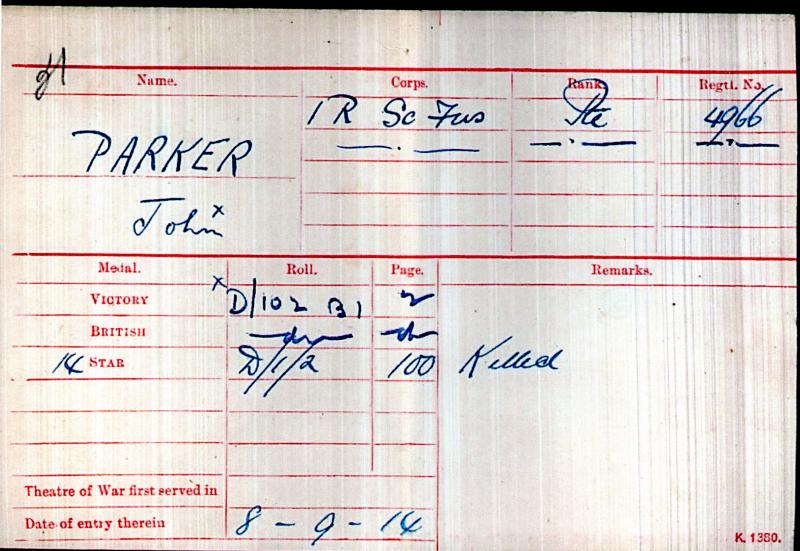 Name. Corps. Rank. Regtl. No.
1 R Sc Fus Pte 4966
PARKER
John x
Medal. Roll. Page. Remarks.
VICTORY x D/102 B1 2
BRITISH do do
14 STAR D/1/2 100 Killed
Theatre of War first served in
Date of entry therein 8 - 9 - 14
K. 1380.